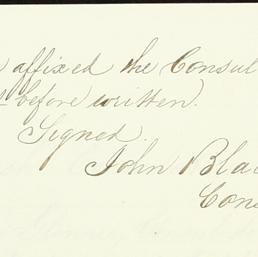 affixed the Consul
before written.
Signed.
John Bla
Cons